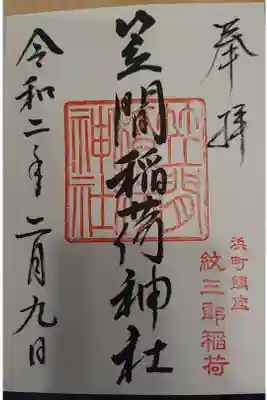 奉拝
浜町鎮座
紋三郎稲荷
笠間稲荷神社
笠間稲荷神社
令和二年二月九日